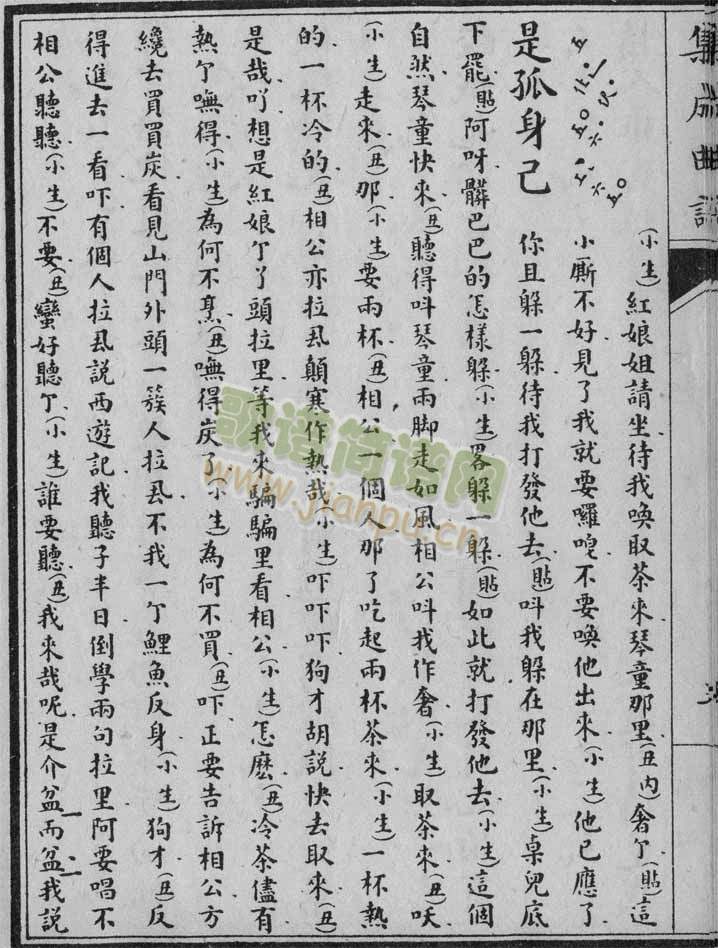 集成曲譜
是孤身己
(小生)紅娘姐請坐待我喚取茶來琴童那里(丑內)奢亇(貼)這
小厮不好見了我就要囉唣不要喚他出來(小生)他已應了
你且躲一躲待我打發他去(貼)呌我躲在那里(小生)桌兒底
下罷(貼)阿呀髒巴巴的怎樣躲(小生)畧躲一躲(貼)如此就打發他去(小生)這個
自然琴童快來(丑)聽得呌琴童兩脚走如風相公呌我作奢(小生)取茶來(丑)
(小生)走來(丑)那(小生)要兩杯(丑)相公一個人那了吃起兩杯茶來(小生)一杯熱
的一杯冷的(丑)相公亦拉厾顛寒作熱哉(小生)吓吓吓狗才胡說快去取來(丑)
是哉吖想是紅娘亇丫頭拉里等我來騙騙里看相公(小生)怎麽(丑)冷茶儘有
熱亇嘸得(小生)為何不烹(丑)嘸得炭了(小生)為何不買(丑)吓正要告訴相公方
纔去買買炭看見山門外頭一簇人拉厾不我一亇鯉魚反身(小生)狗才(丑)反
得進去一看吓有個人拉厾說西遊記我聽子半日倒學兩句拉里阿要唱不
相公聽聽(小生)不要(丑)蠻好聽亇(小生)誰要聽(丑)我來哉呢是介盆而盆我說
歌谱简谱网
www.jianpu.cn